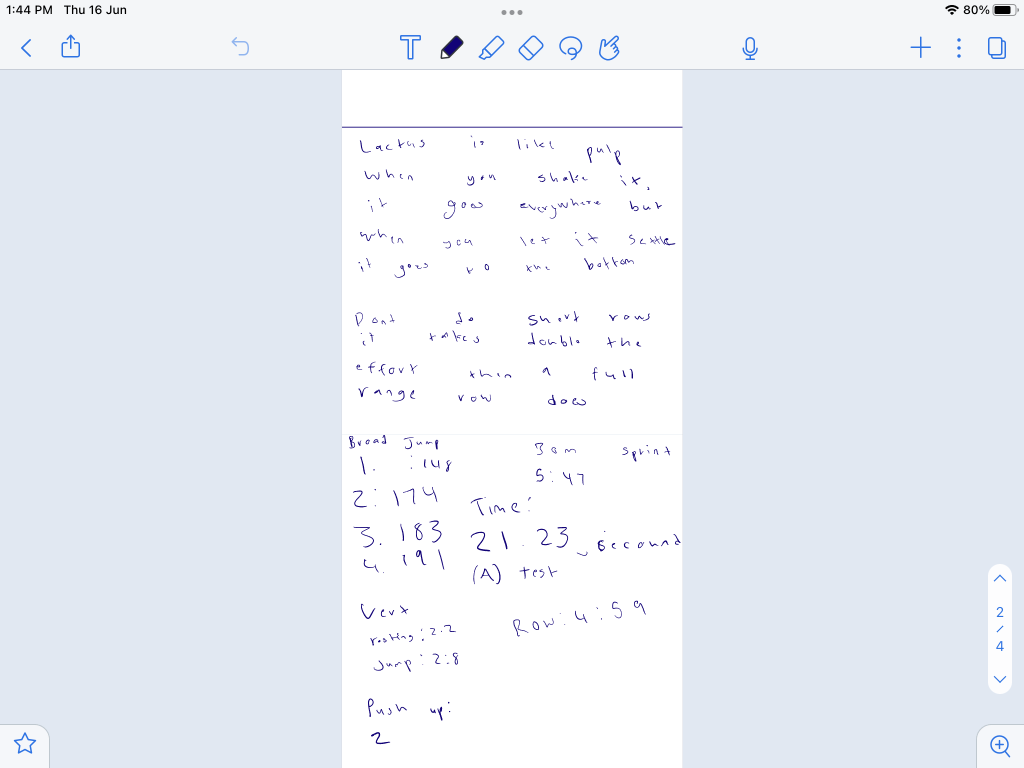 1:44 PM Thu 16 Jun
80%
T
Lactus is like pulp
when you shake it,
it goes everywhere but
when you let it settle
it goes to the bottom
Dont do short rows
it takes double the
effort than a full
range row does
Broad Jump
1. :148
2: 174
3. 183
4. 191
30m sprint
5:47
Time:
21.23 secound
(A) test
Vert
resting: 2.2
Jump: 2:8
Row: 4:59
Push up:
2
2
/
4